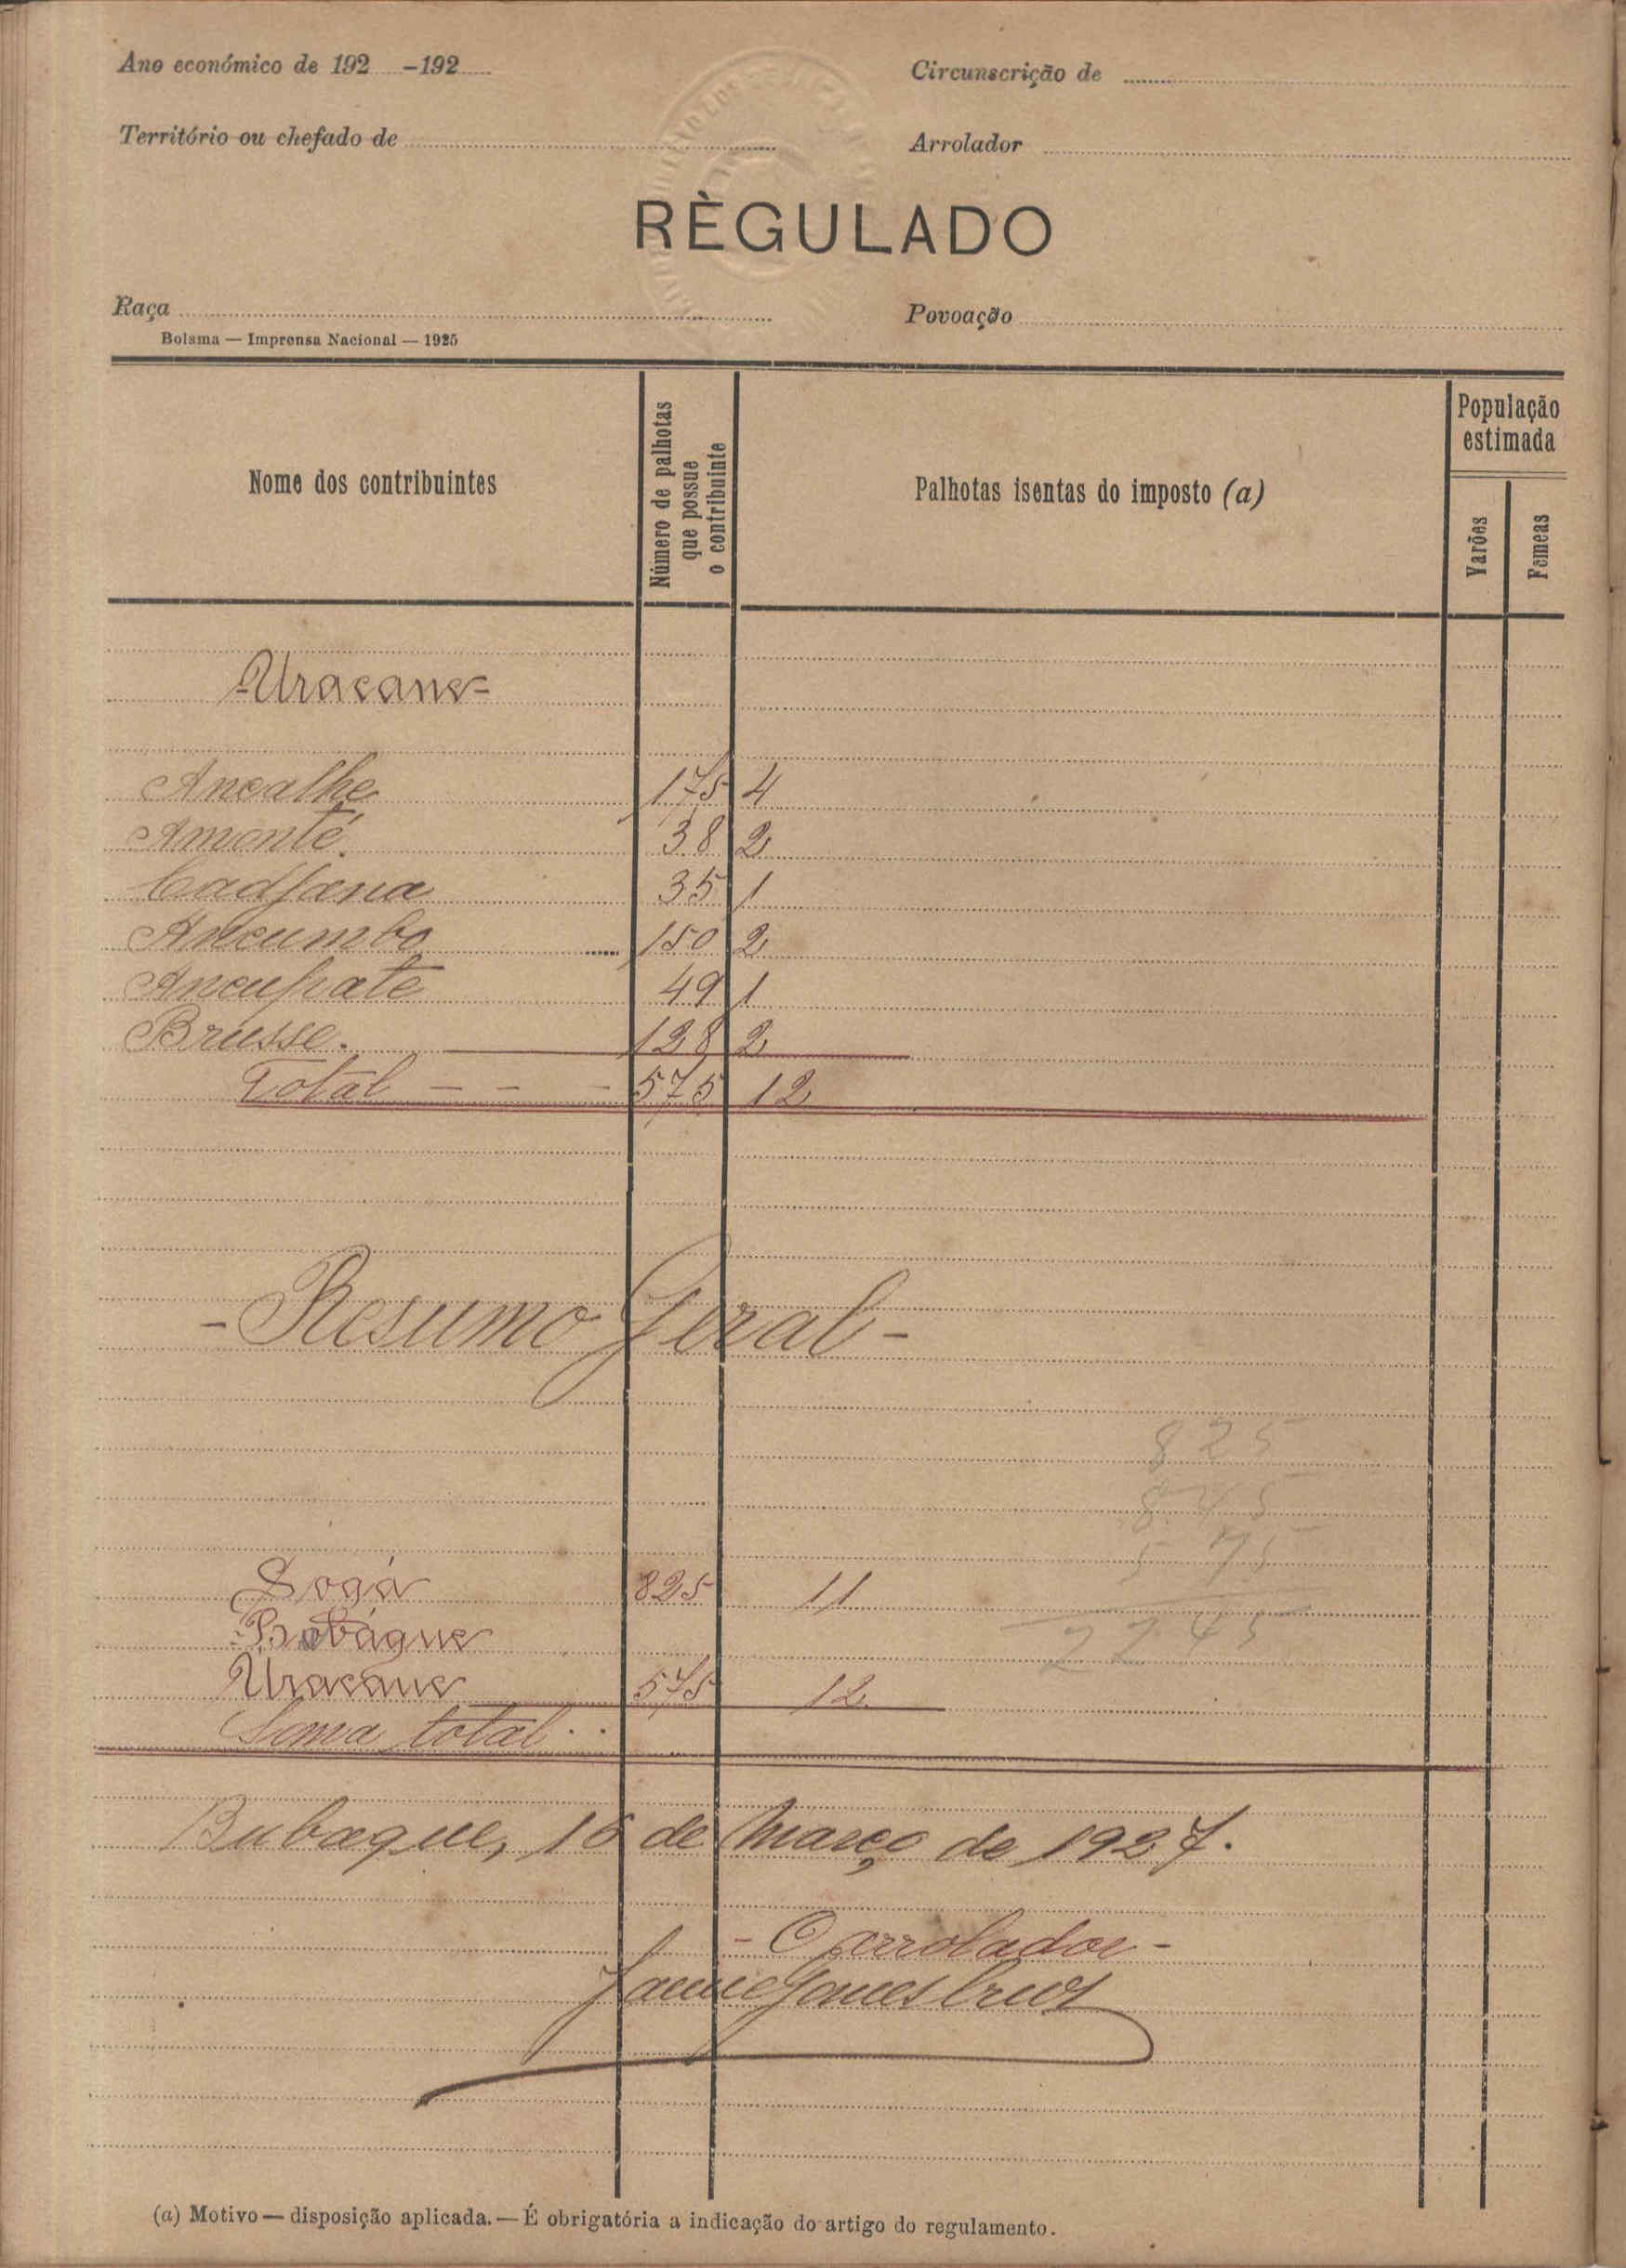 Ano económico de 192 -192
Circunscrição de
Território ou chefado de
Arrolador
RÈGULADO
Raça
Povoação
Bolama — Imprensa Nacional — 1925
Nome dos contribuintes
Número de palhotas que possue o contribuinte
Palhotas isentas do imposto (a)
População estimada
Varões
Femeas
-Uracane-
Ancalhe 175 4
Amonté. 38 2
Cadjana 35 1
Ancumbo 150 2
Ancupate 49 1
Brusse. 128 2
Total - - - 575 12
- Resumo Geral -
825
845
575
2245
Sogá 825 11
Bubáque
Uracane 575 12
Soma total . .
Bubaque, 16 de Março de 1927.
- O arrolador -
Jaime Gomes
(a) Motivo — disposição aplicada. — É obrigatória a indicação do artigo do regulamento.